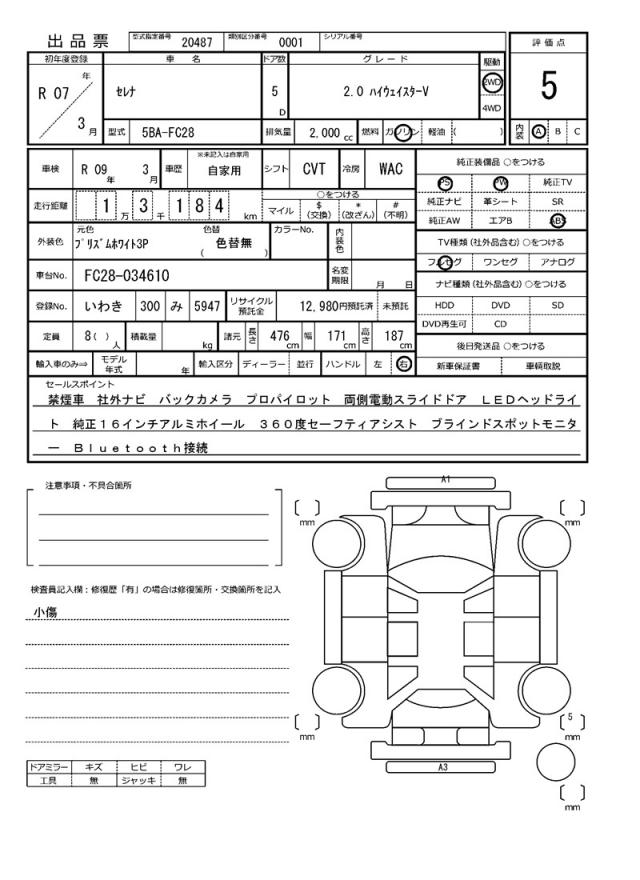 出品票 型式指定番号 20487 類別区分番号 0001 シリアル番号
評価点
5
内装 A B C
初年度登録 車名 ドア数 グレード 駆動
R 07 年 3 月 セレナ 5 D 2.0 ハイウェイスターV 2WD 4WD
型式 5BA-FC28 排気量 2,000 cc 燃料 ガソリン 軽油 ( )
車検 R 09 年 3 月 車歴 ※未記入は自家用 自家用 シフト CVT 冷房 WAC
走行距離 1 万 3 千 1 8 4 km ○をつける
マイル $ (交換) * (改ざん) # (不明)
外装色 元色 プリズムホワイト3P 色替 ( 色替無 ) カラーNo. 内装色
車台No. FC28-034610 名変期限 月 日
登録No. いわき 300 み 5947 リサイクル預託金 12,980円預託済 未預託
定員 8( ) 人 積載量 kg 諸元 長さ 476 cm 幅 171 cm 高さ 187 cm
輸入車のみ⇒ モデル年式 年 輸入区分 ディーラー 並行 ハンドル 左 右
純正装備品 ○をつける
PS PW 純正TV
純正ナビ 革シート SR
純正AW エアB ABS
TV種類 (社外品含む) ○をつける
フルセグ ワンセグ アナログ
ナビ種類 (社外品含む) ○をつける
HDD DVD SD
DVD再生可 CD
後日発送品 ○をつける
新車保証書 車輌取説
セールスポイント
禁煙車 社外ナビ バックカメラ プロパイロット 両側電動スライドドア LEDヘッドライ
ト 純正16インチアルミホイール 360度セーフティアシスト ブラインドスポットモニタ
ー Bluetooth接続
注意事項・不具合箇所
検査員記入欄：修復歴「有」の場合は修復箇所・交換箇所を記入
小傷
ドアミラー キズ ヒビ ワレ
工具 無 ジャッキ 無
A1
mm
mm
mm
5
mm
A3
mm